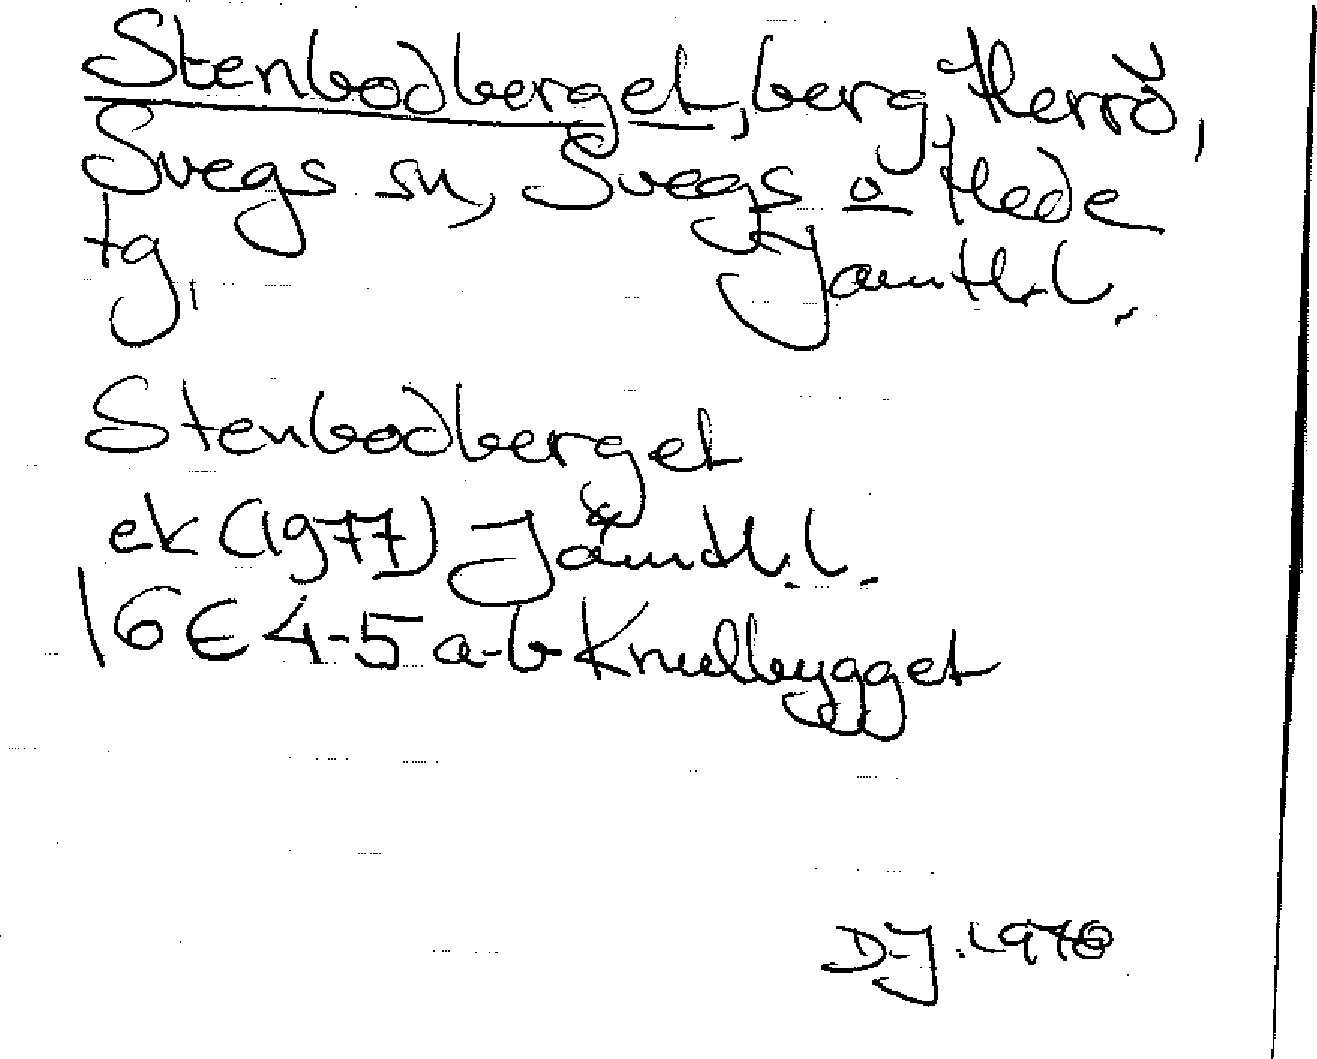 Stenbodberget, berg, Herrö,
Svegs sn, Svegs o Hede
tg, Jämtl. l.
Stenbodberget
ek (1977) Jämtl. l.
16E 4-5 a-b Knullbygget
D-J.